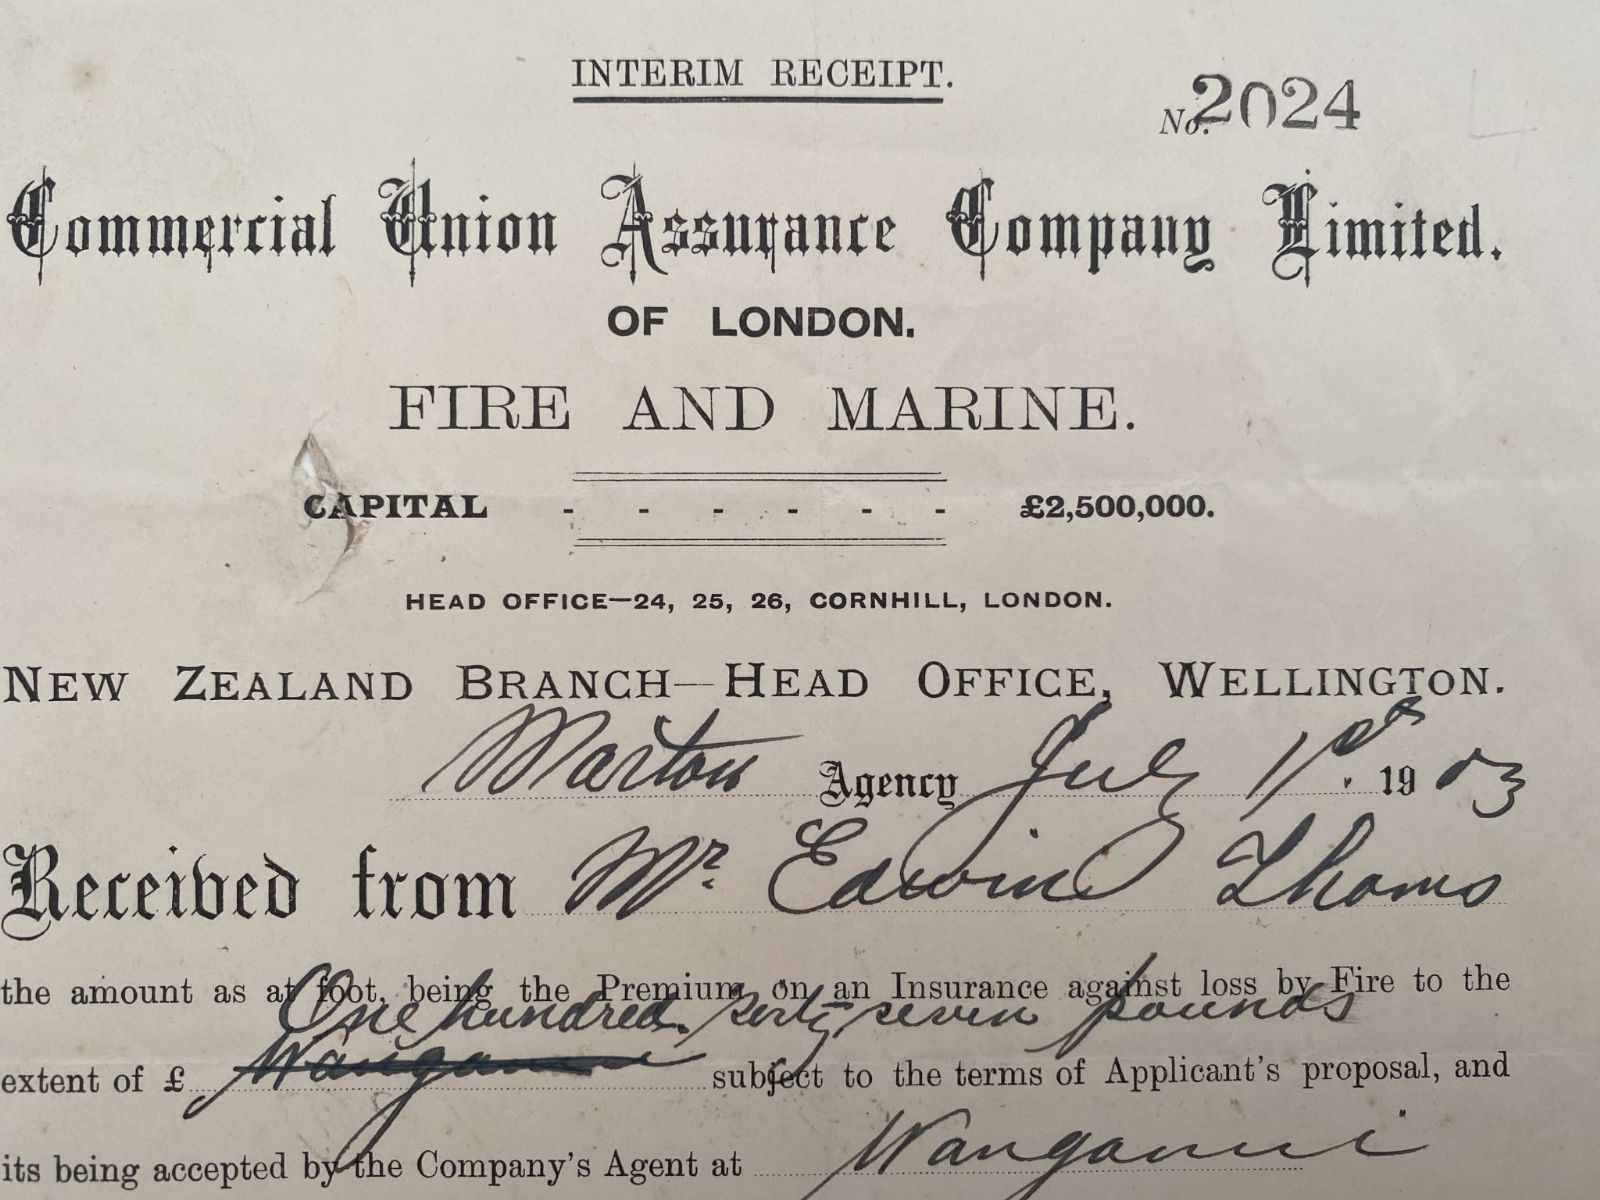 INTERIM RECEIPT.
No. 2024
Commercial Union Assurance Company Limited.
OF LONDON.
FIRE AND MARINE.
CAPITAL - - - - - - £2,500,000.
HEAD OFFICE—24, 25, 26, CORNHILL, LONDON.
NEW ZEALAND BRANCH—HEAD OFFICE, WELLINGTON.
Marton Agency July 1st. 1903
Received from Mr. Edwin Thoms
the amount as at foot, being the Premium on an Insurance against loss by Fire to the
One hundred seven pounds
extent of £ Wanganui subject to the terms of Applicant's proposal, and
its being accepted by the Company's Agent at Wanganui